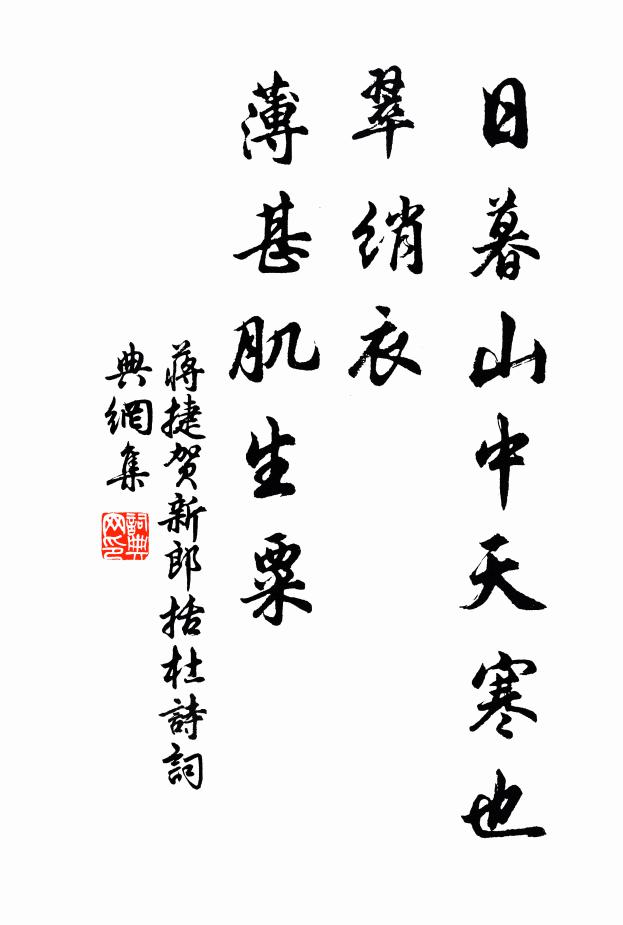 日暮山中天寒也
翠綃衣
薄甚肌生粟
蔣捷賀新郎括杜詩詞
典網集
詞典網印